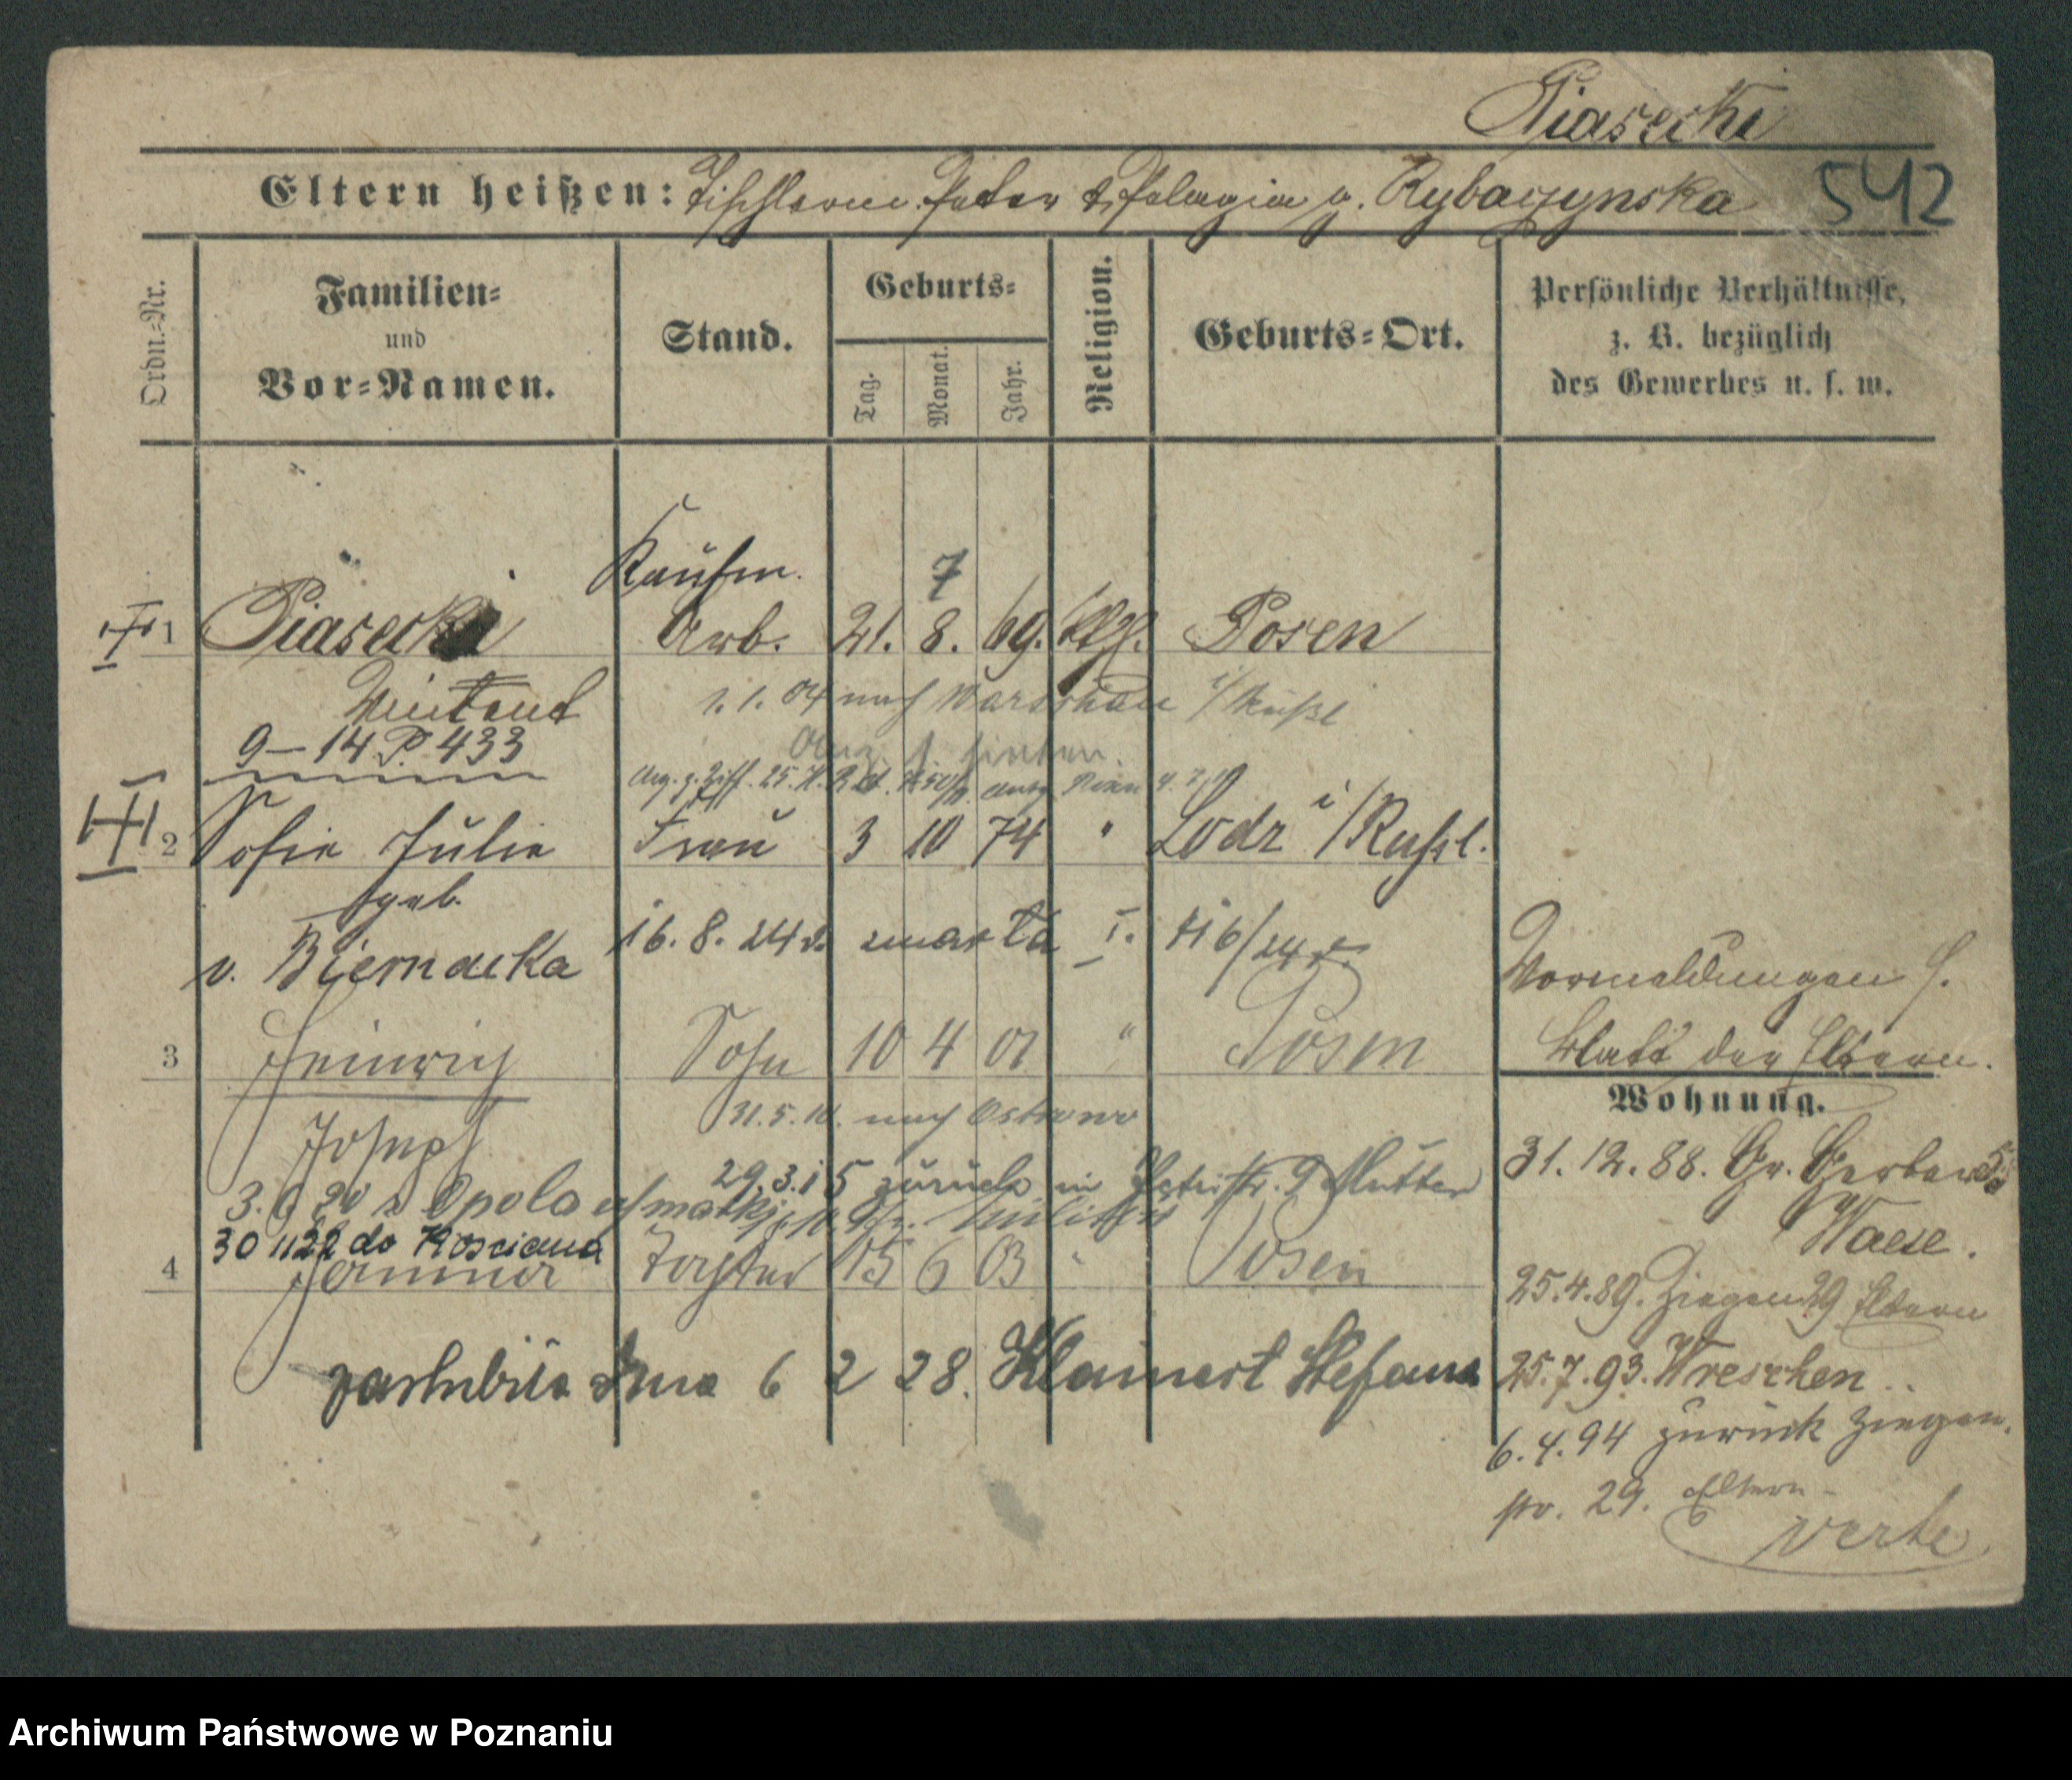 Piasecki
Eltern heißen: Tischlerm. Peter & Pelagia g. Rybaczynska 542
Ordn.-Nr.
Familien-
und
Vor-Namen.
Stand.
Geburts-
Tag. Monat. Jahr.
Religion.
Geburts-Ort.
Persönliche Verhältnisse,
z. B. bezüglich
des Gewerbes u. s. w.
Kaufm. 7
1 Piasecki Arb. 21. 8. 69. kth. Posen
1. 1. 04 nach Warschau i/Rußl
9–14 P. 433
2 Sofie Julie Frau 3 10 74 " Lodz i/Russl.
geb.
v. Biernacka 16. 8. 24 r. zmarła I.
Vormeldungen s.
Blatt der Eltern.
3 Heinrich Sohn 10 4 01 " Posen
Wohnung.
Joseph 31.5.10. nach Ostrowo
29.3.15 zurück in 9 Mutter
3. 6 20 z Opola matki
30 11 22 do Kosciana
4 Tochter 15 6 03 Posen
zaślubiła dnia 6 2 28. Stefana
31. 12. 88. Gr. Gerber
Waese.
25.4.89. Ziegen 29 Eltern
25.7.93. Wreschen
6.4.94 zurück Ziegen.
str. 29. Eltern
verte
Archiwum Państwowe w Poznaniu